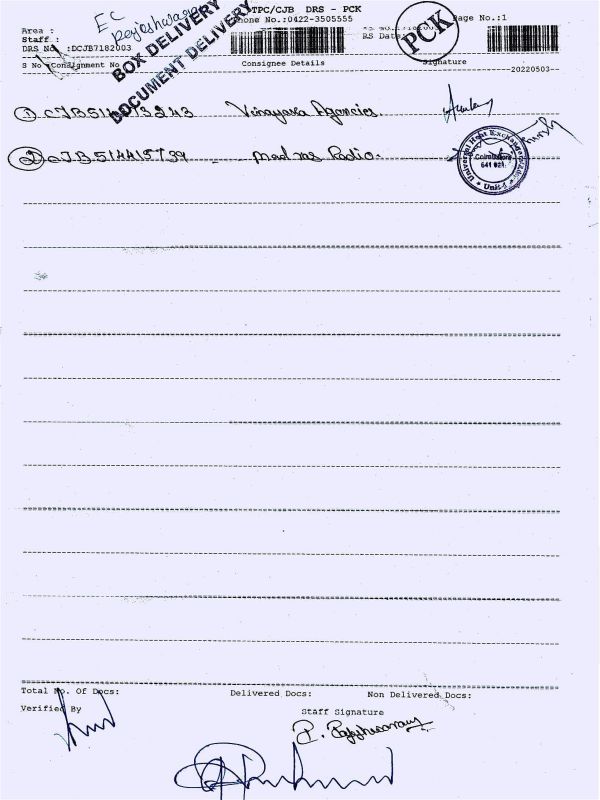 TPC/CJB DRS - PCK
EC
Phone No.:0422-3505555
Page No.:1
PCK
Area :
Staff :
DRS No :DCJB7182003
BOX DELIVERY
DOCUMENT DELIVERY
S No Consignment No
Consignee Details
Signature
20220503
1 Vinayaka Agencies.
2 CJB514415739 - Mad ras Radio.
Universal Heat Exchangers
Coimbatore
641 021
Unit-I
Total No. Of Docs:
Delivered Docs:
Non Delivered Docs:
Verified By
Staff Signature